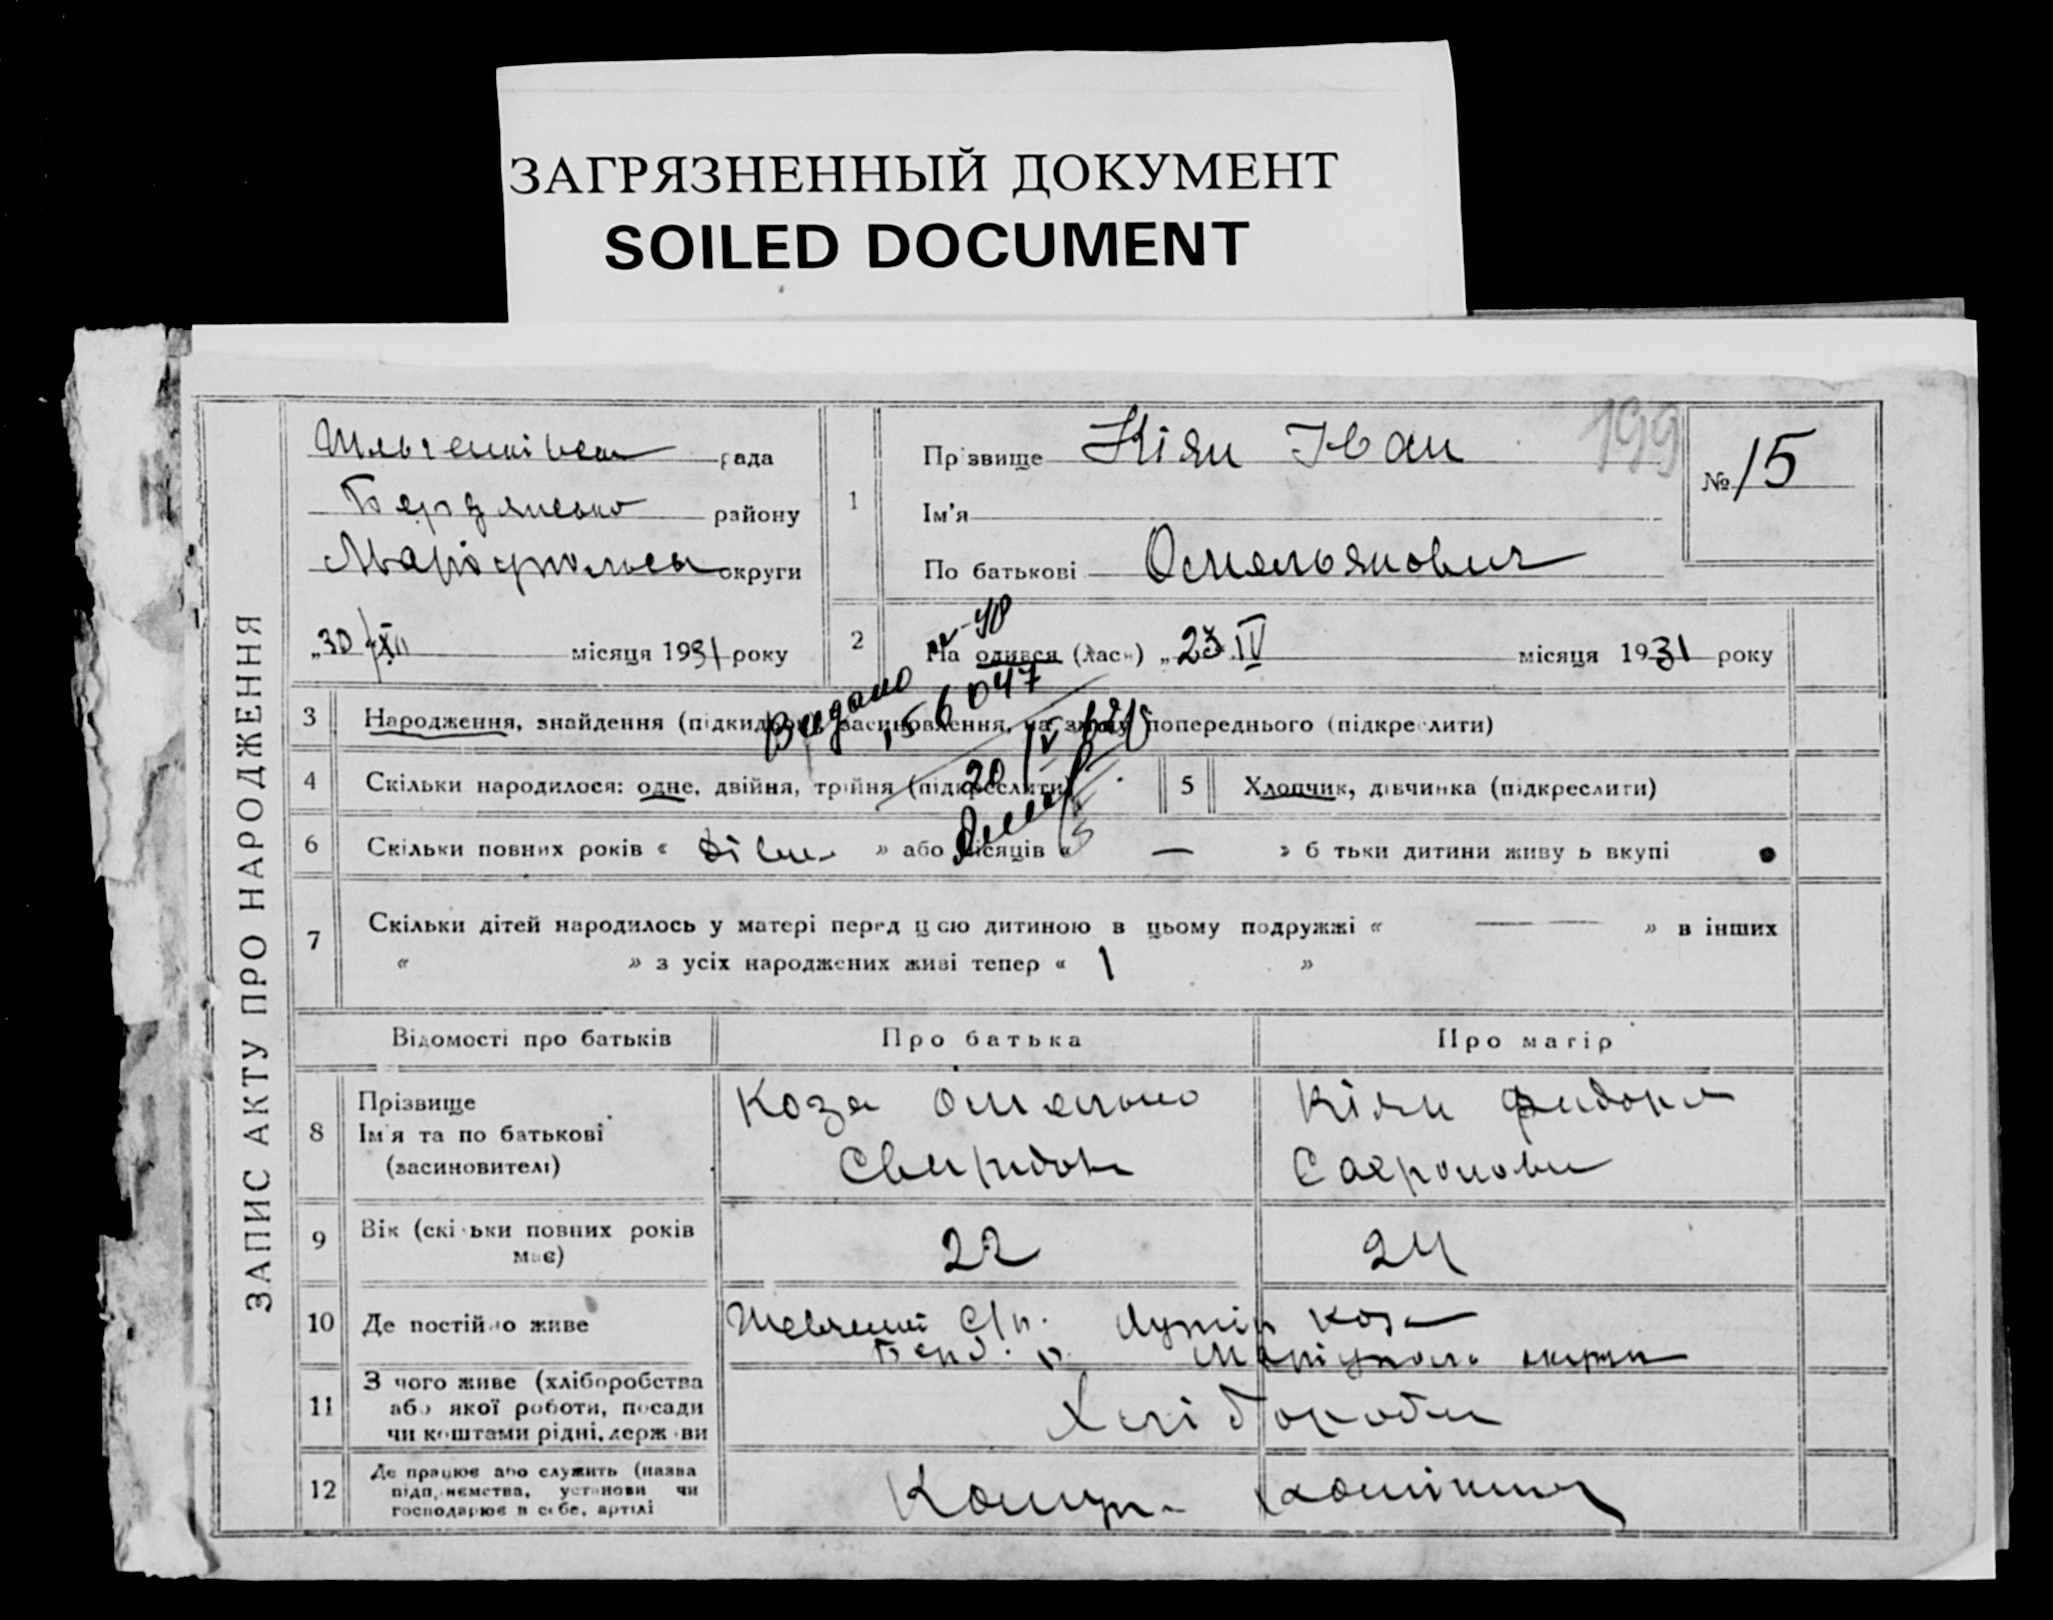 ЗАГРЯЗНЕННЫЙ ДОКУМЕНТ
SOILED DOCUMENT
ЗАПИС АКТУ ПРО НАРОДЖЕННЯ
рада
району
округи
„30 XII місяця 1931 року
1
Прізвище Кіян Іван
Ім'я
По батькові Омельянович
199
№ 15
2
На одився (лась) „23 IV місяця 1931 року
Видано
156047
20
3 Народження, знайдення (підкид засиновлення, на зміну попереднього (підкреслити)
4 Скільки народилося: одне, двійня, трійня (підкреслити)
5 Хлопчик, дівчинка (підкреслити)
6 Скільки повних років « » або місяців « — » б тьки дитини живу ь вкупі
7 Скільки дітей народилось у матері перед цією дитиною в цьому подружжі « — — » в інших
« » з усіх народжених живі тепер « 1 »
Відомості про батьків Про батька Про матір
8 Прізвище
Ім'я та по батькові
(засиновителі)
Коза Омелько
Свиридон
Кіян
9 Вік (скільки повних років
має)
22 24
10 Де постійно живе
Хутір Коза
Берд. р.
11 З чого живе (хліборобства
або якої роботи, посади
чи коштами рідні, держ ви
Хліборобы
12 Де працює або служить (назва
підприємства, установи чи
господарює в себе, артілі